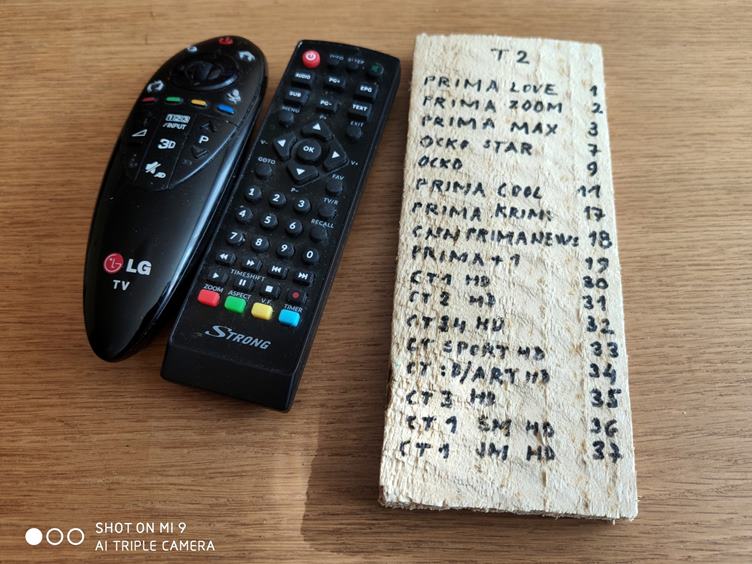 1 2 3
/INPUT
P
3D
LG
TV
INFO SLEEP
AUDIO PG+ EPG
SUB PG- TEXT
MENU EXIT
V- OK V+
GOTO P- FAV
1 2 3 TV/R
4 5 6 RECALL
7 8 9 0
TIMESHIFT
ZOOM ASPECT V.F. TIMER
STRONG
T2
PRIMA LOVE 1
PRIMA ZOOM 2
PRIMA MAX 3
OCKO STAR 7
OCKO 9
PRIMA COOL 11
PRIMA KRIMI 17
CNN PRIMA NEWS 18
PRIMA+1 19
CT1 HD 30
CT2 HD 31
CT24 HD 32
CT SPORT HD 33
CT :D/ART HD 34
CT3 HD 35
CT1 SM HD 36
CT1 JM HD 37
SHOT ON MI 9
AI TRIPLE CAMERA